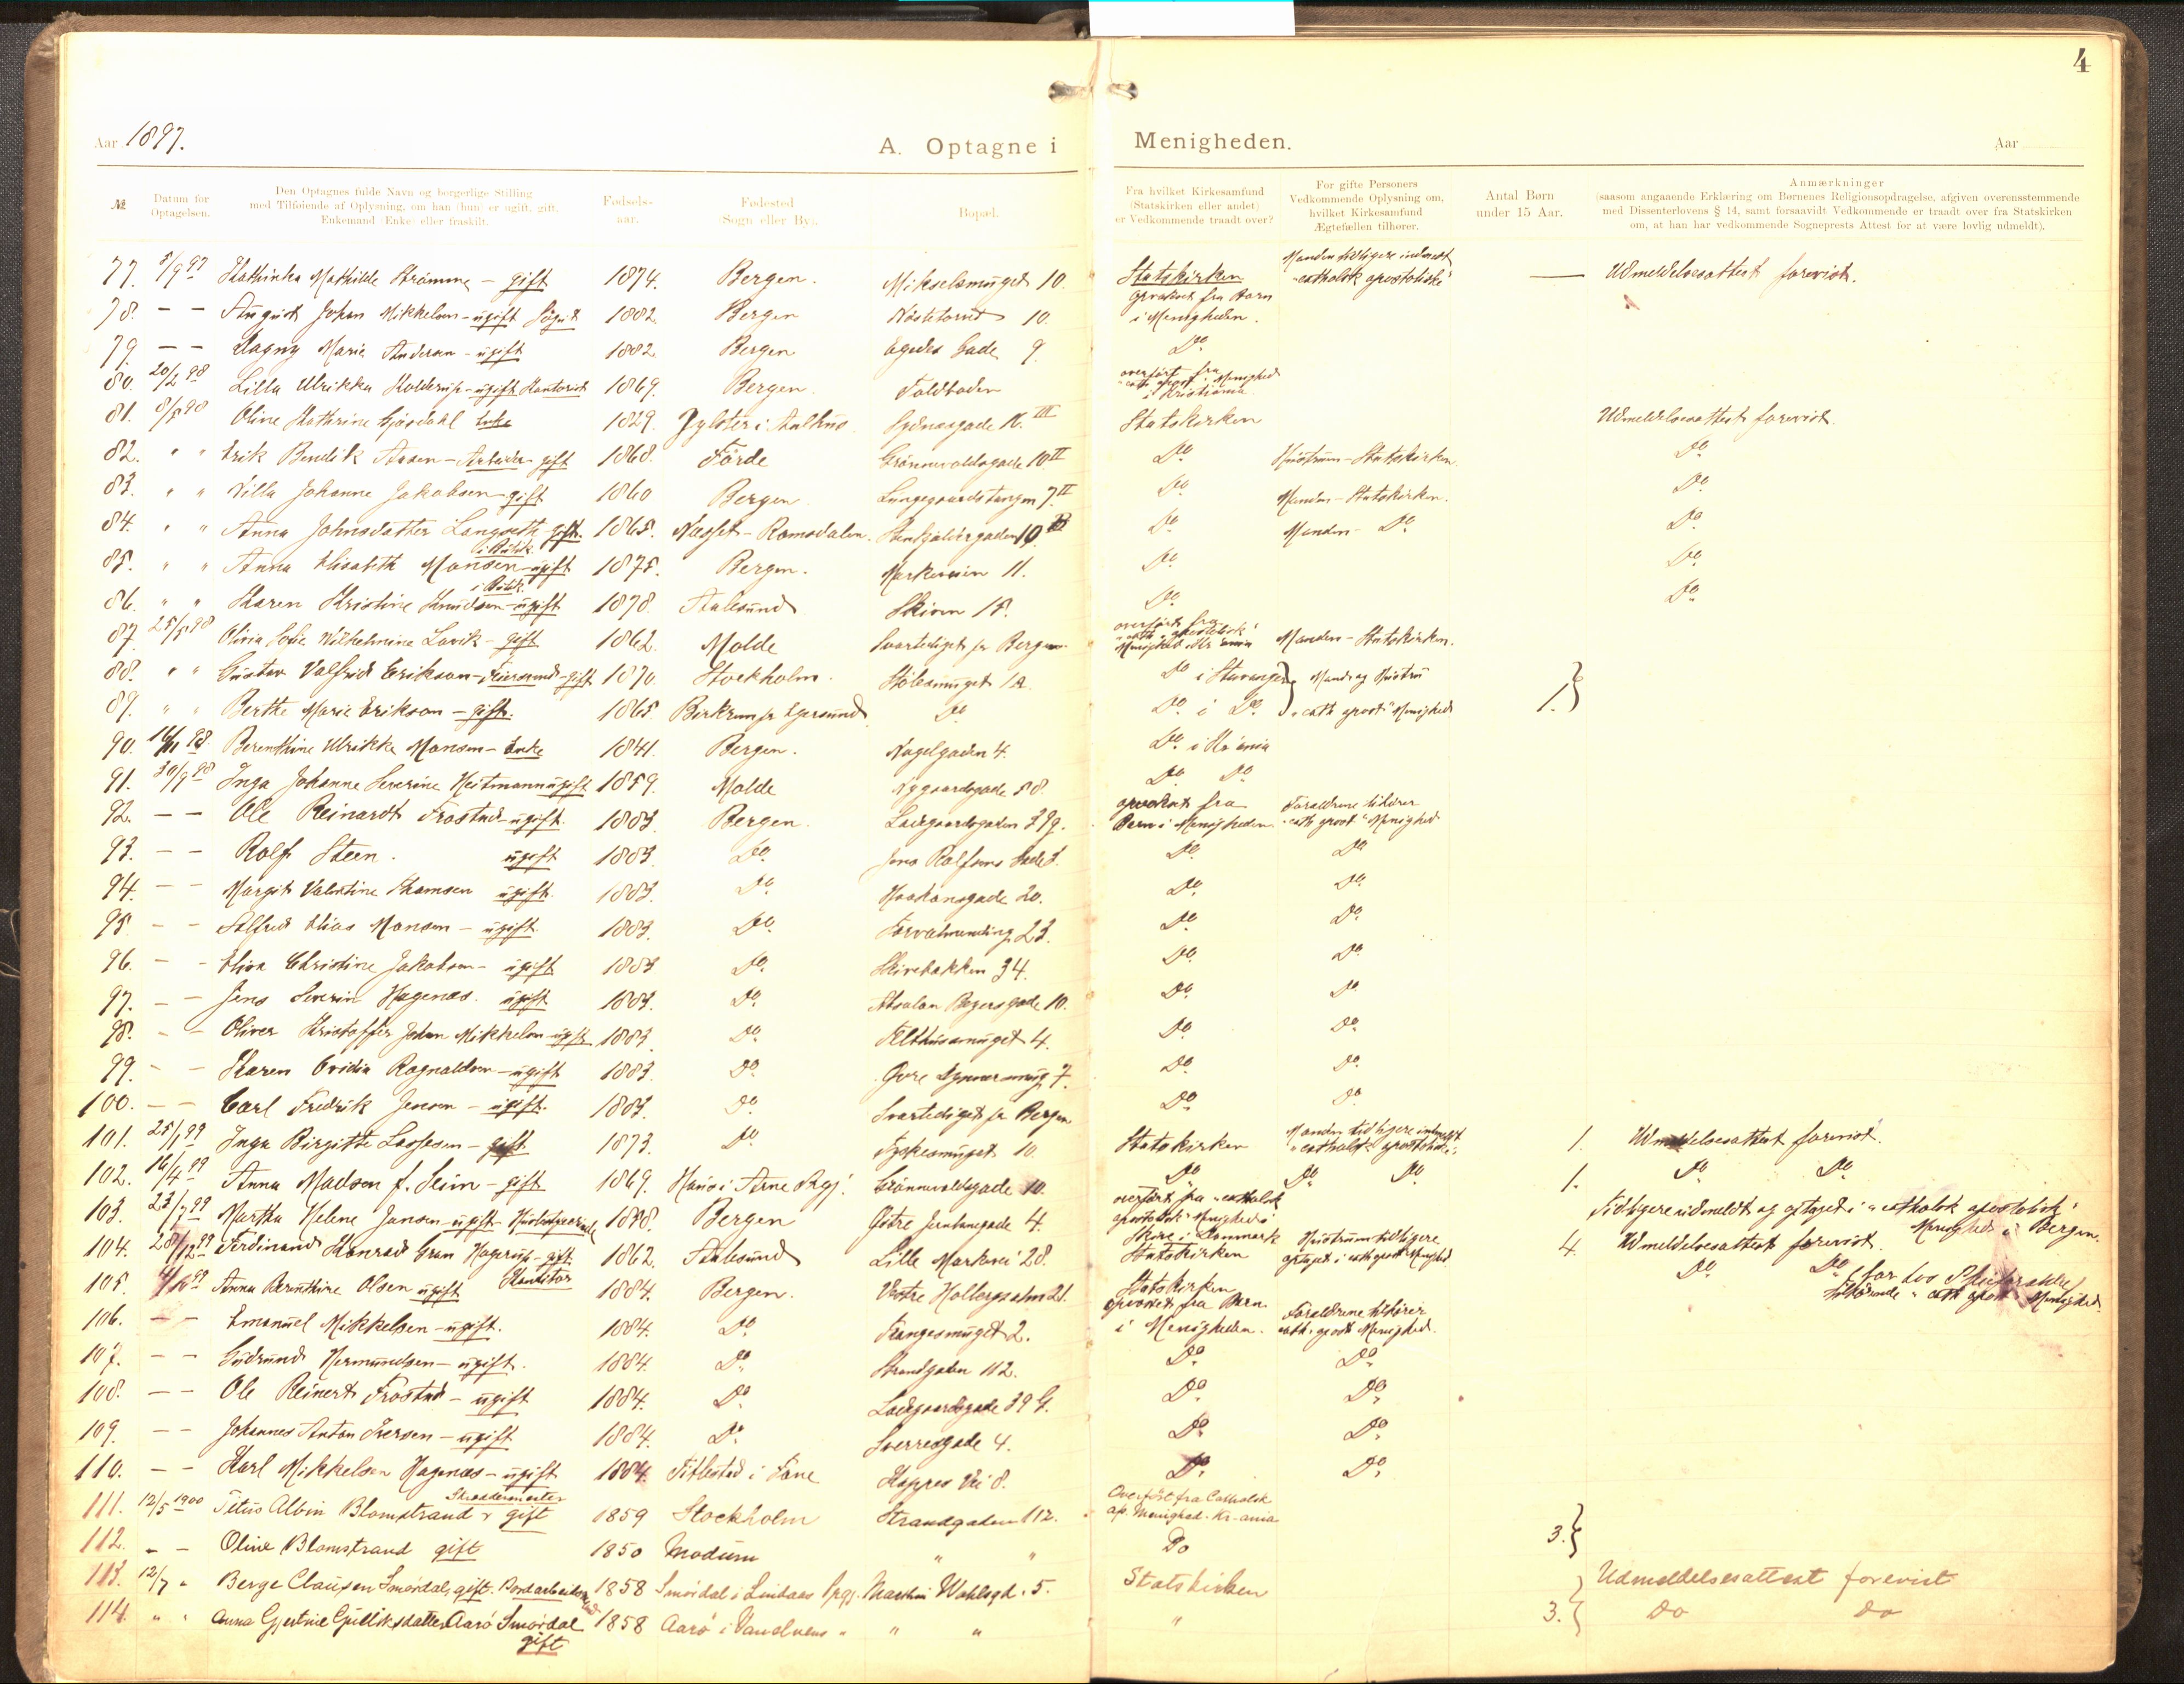 4
Aar 1897.
A. Optagne i Menigheden.
Aar
№ Datum for Optagelsen. Den Optagnes fulde Navn og borgerlige Stilling med Tilføiende af Oplysning, om han (hun) er ugift, gift, Enkemand (Enke) eller fraskilt. Fødsels-aar. Fødested (Sogn eller By). Bopæl. Fra hvilket Kirkesamfund (Statskirken eller andet) er Vedkommende traadt over? For gifte Personers Vedkommende Oplysning om, hvilket Kirkesamfund Ægtefællen tilhører. Antal Børn under 15 Aar. Anmærkninger (saasom angaaende Erklæring om Børnenes Religionsopdragelse, afgiven overensstemmende med Dissenterlovens § 14, samt forsaavidt Vedkommende er traadt over fra Statskirken om, at han har vedkommende Sogneprests Attest for at være lovlig udmeldt).
77. 5/9 97 Kathinka Mathilde Strömme - gift 1874. Bergen. Mikselsmuget 10. Statskirken Manden tidligere indmeldt "catholsk apostoliske" — Udmeldelsesattest forevist.
78. - - August Johan Mikkelsen - ugift 1882. Bergen Nöstetorvet 10. opvokset fra Barn i Menigheden.
79. - - Dagny Marie Andersen - ugift 1882 Bergen Egedes Gade 9. Do
80. 20/2 98 Lilla Ulrikka Holderup - ugift Kontorist 1869. Bergen. Toldboden overført fra "cath. apost." Menighed i Kristiania
81. 8/5 98 Oline Kathrine Gjösdahl Enke 1829. Jylster i Aalhus. Sydnesgade 16. III Statskirken Udmeldelsesattest forevist.
82. " " Erik Bendik Aasen - Arbeider gift 1868. Förde Grönnevoldsgade 10. II Do Hustruen - Statskirken. Do
83. " " Villa Johanne Jakobsen - gift 1860 Bergen Lungegaardstangen 7. II Do Manden - Statskirken. Do
84. " " Anna Johnsdatter Langseth gift. 1865. Nesset - Romsdalen. 10 Do Manden - Do Do
85. " " Anna Elisabeth Monsen - ugift i Butik 1875. Bergen. Markeveien 11. Do Do
86. " " Karen Kristine Knudsen - ugift i Butik 1878. Aalesund Skiven 15. Do Do
87. 25/5 98 Olivia Sofie Wilhelmine Lavik - gift 1862. Molde Svartediget pr Bergen. overført fra "cath. apostolsk" Menighed i Kr.ania Manden - Statskirken.
88. " " Gustav Valfrid Erikson - gift 1870. Stockholm. Stölesmuget 12. Do i Stavanger Mand og Hustru
89. " " Berthe Marie Erikson - gift. 1865. Birkrem pr Egersund Do Do i Do "cath. apost" Menighed 1.
90. 16/11 98 Berenthine Ulrikke Monsen - Enke 1841. Bergen. Nagelgaden 4. Do i Kr.ania
91. 30/9 98 Inga Johanne Severine Heitmann ugift 1859. Molde Nygaardsgade 58. Do Do
92. - - Ole Reinardt Frostad - ugift. 1883. Bergen. Ladegaardsgaden 39g. opvokset fra Barn i Menigheden Forældrene tilhører "cath. apost" Menighed
93. - - Rolf Steen. ugift 1883. Do. Jens Rolfsens Gade 3. Do. Do
94. - - Margit Valentine Thomsen ugift. 1883. Do. Haakonsgade 20. Do. Do
95. - - Alfred Elias Monsen - ugift. 1883. Do. Torvalmending 23. Do. Do.
96. - - Elisa Christine Jakobsen - ugift 1883 Do. Skivebakken 34. Do. Do.
97. - - Jens Severin Hagenæs. ugift 1883. Do. Absalon Beyersgade 10. Do. Do.
98. - - Oliver Kristoffer Johan Mikkelsen - ugift 1883. Do. Felthusmuget 4. Do. Do.
99. - - Karen Ovidia Ragnaldsen - ugift 1883. Do. Øvre 7. Do. Do.
100. - - Carl Fredrik Jensen - ugift. 1883. Do. Svartediget pr Bergen Do. Do.
101. 25/1 99 Inga Birgitte Lassesen - gift 1873. Do. Tyskesmuget 10. Statskirken Manden tidligere indmeldt "catholsk apostolisk". 1. Udmeldelsesattest forevist.
102. 16/4 99 Anna Madsen f. Seim - gift 1869. Haus i Arne Prgj. Grönnevoldsgade 10. Do Do Do 1. Do Do
103. 23/7 99 Martha Helene Jansen - ugift - 1838. Bergen Østre 4. overført fra "catholsk apostolsk" Menighed i Skive i Danmark Tidligere udmeldt og optaget i "catholsk apostolsk" Menighed i Bergen.
104. 28/12 99 Ferdinand Konrad Gran Hagerup - gift. 1862. Aalesund Lille Markevei 28. Statskirken Hustruen tidligere optaget i cath. apost Menighed. 4. Udmeldelsesattest forevist.
105. Anna Bernthine Olsen ugift 1884. Bergen. Vestre Holbergsalm 21. Statskirken Do Do (for hos Pleieforældre tilhørende "cath. apost" Menighed.
106. - - Emanuel Mikkelsen - ugift. 1884. Do. Frangesmuget 2. opvokset fra Barn i Menigheden. Forældrene tilhører cath. apost Menighed.
107. - - Gudrund Hermundsen - ugift. 1884. Do. Strandgaden 112. Do. Do.
108. - - Ole Reinert Frostad - ugift 1884. Do. Ladegaardsgade 39 G. Do. Do.
109. - - Johannes Anton Iversen - ugift 1884. Do. Sverresgade 4. Do. Do.
110. - - Karl Mikkelsen Hagenæs - ugift 1884. Titlestad i Fane Kappes Vei 8. Do. Do.
111. 12/5 1900 Titus Albin Blomstrand Skræddermester gift 1859 Stockholm Strandgaden 112. Overført fra Catholsk ap. Menighed. Kr-ania
112. - - Oline Blomstrand gift 1850 Modum " " Do 3.
113. 12/7 " Berge Clausen Smördal, gift. Bordarbeider 1858 Smördal i Lindaas Prgj. Martin Wahlsgd. 5. Statskirken Udmeldelsesattest forevist
114. " " Anna Gjertine Gulliksdatter Aarö Smördal gift 1858 Aarö i " " " " 3. Do Do